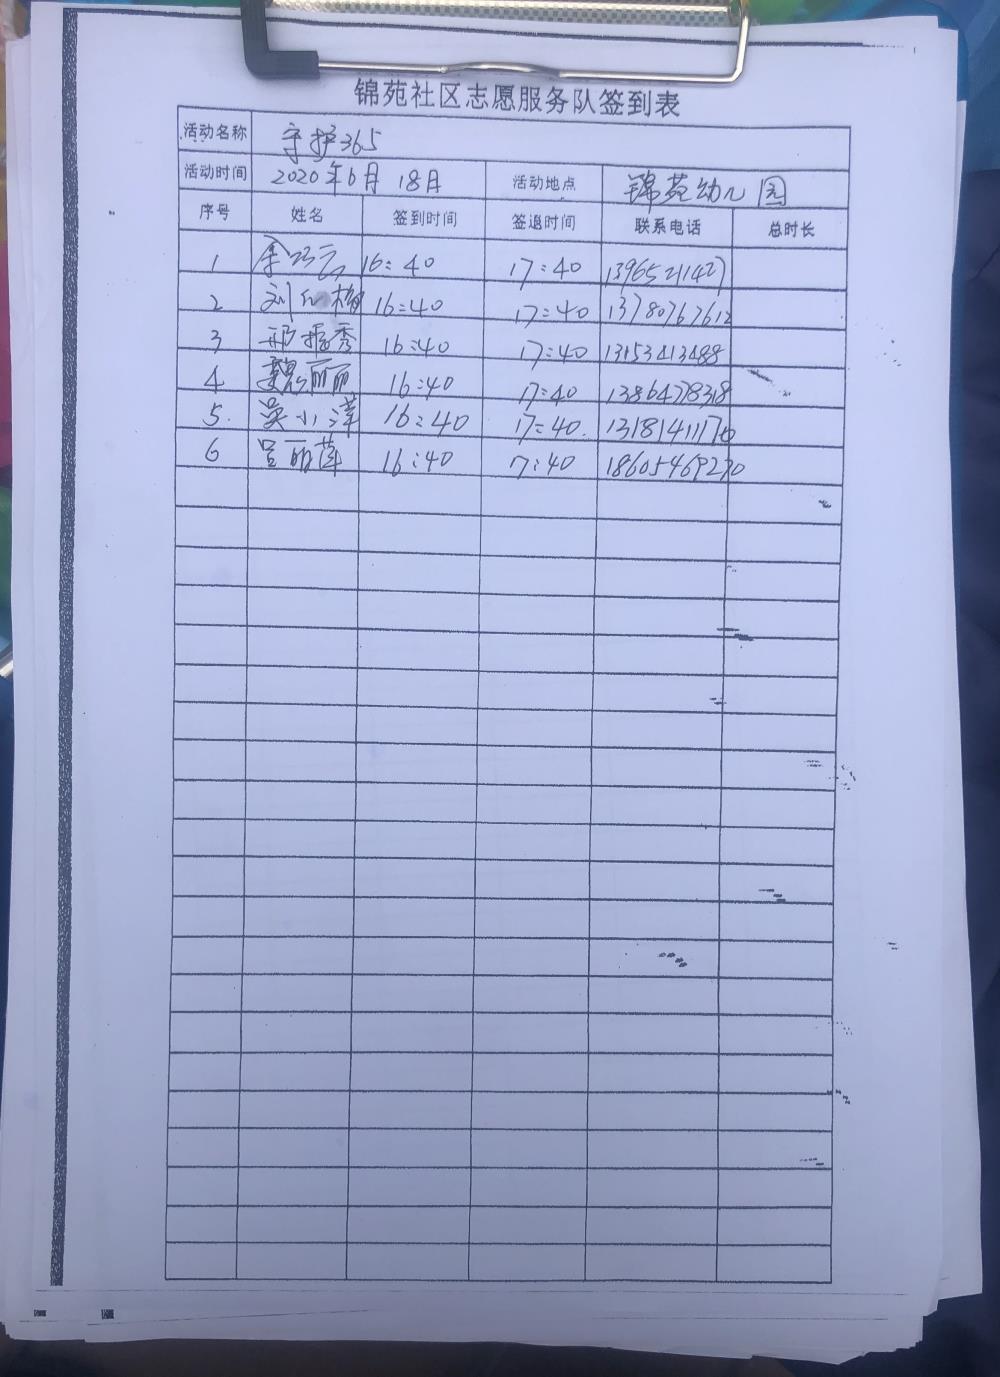 锦苑社区志愿服务队签到表
活动名称 守护365
活动时间 2020年6月18日 活动地点 锦苑幼儿园
序号 姓名 签到时间 签退时间 联系电话 总时长
1 16:40 17:40 13965211427
2 刘 16:40 17:40 13780767612
3 邢振秀 16:40 17:40 13153413488
4 魏丽丽 16:40 17:40 13864278318
5. 吴小洋 16:40 17:40. 13181411170
6 吕丽莲 16:40 17:40 18605469230